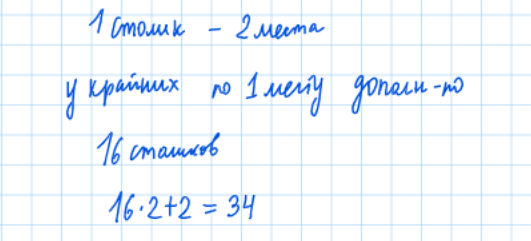 1 столик - 2 места
у крайних по 1 месту дополн-но
16 столиков
16·2+2 = 34